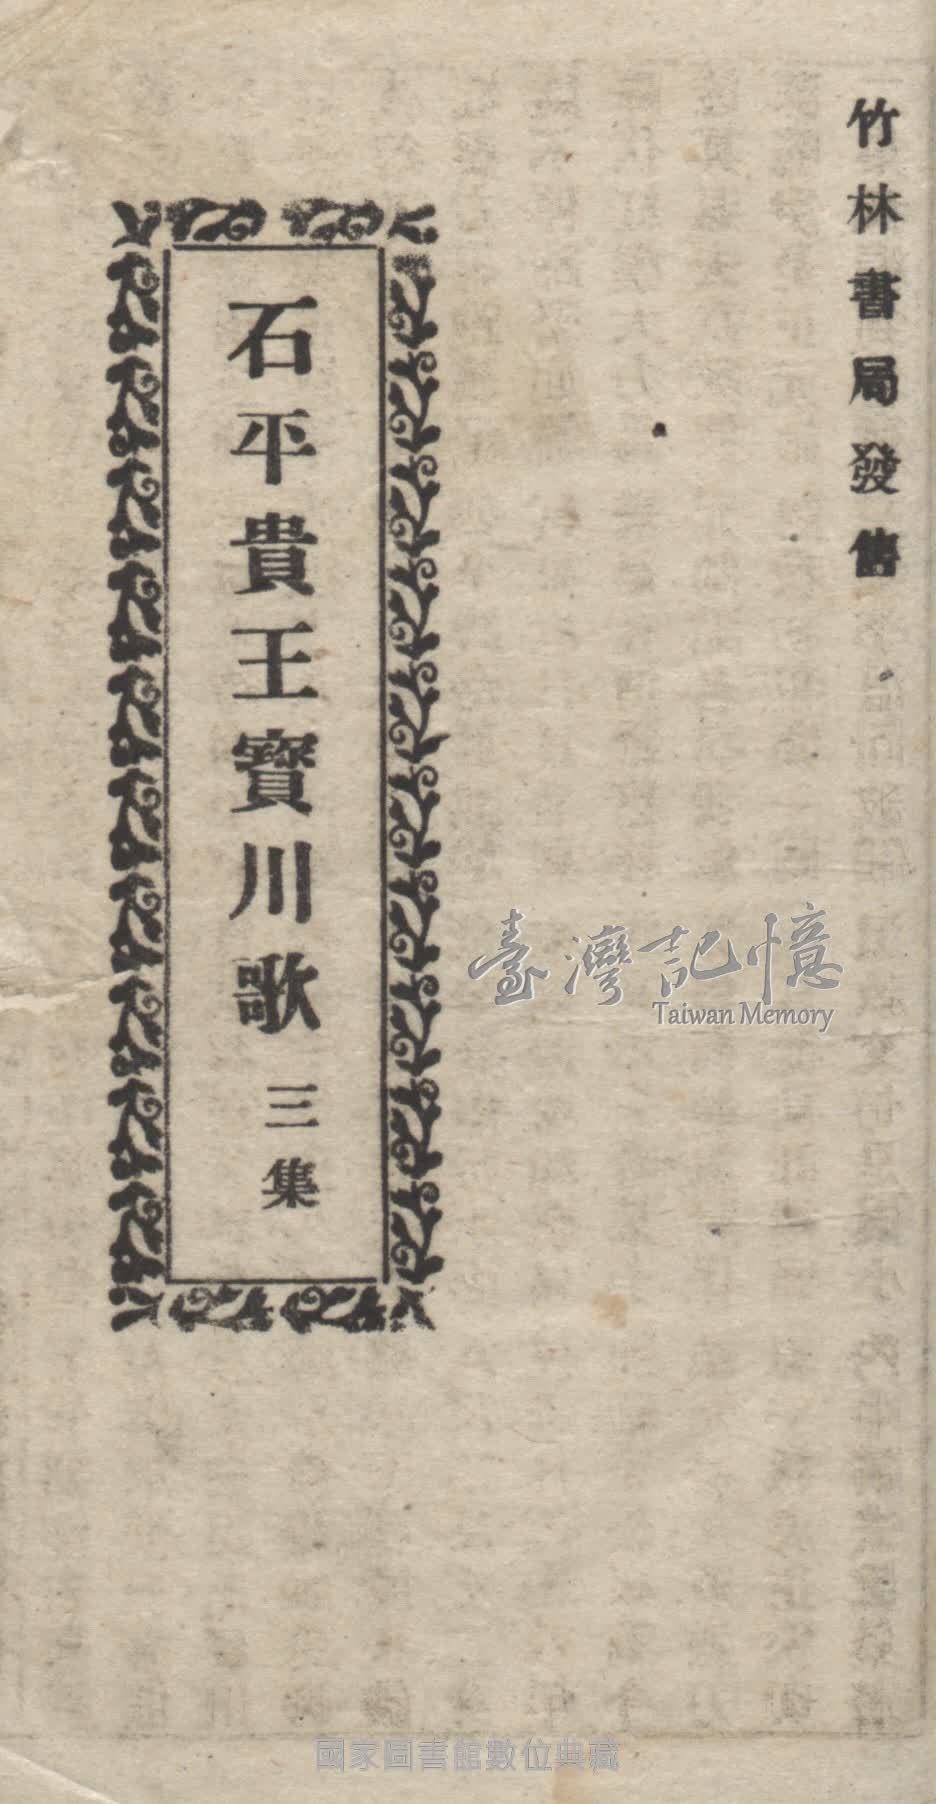 竹林書局發售
石平貴王寶川歌 三集
臺灣記憶
Taiwan Memory
國家圖書館數位典藏